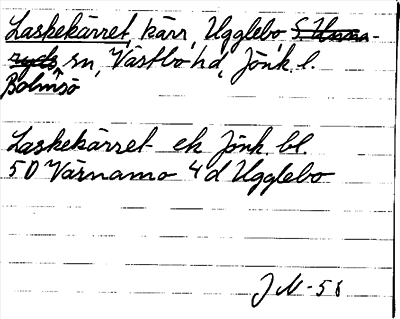 Laskekärret, kärr, Ugglebo, S. Unna-
ryds sn, Västbo hd, Jönk. l.
Bolmsö
Laskekärret ek Jönk. bl.
5D Värnamo 4d Ugglebo
J M-58